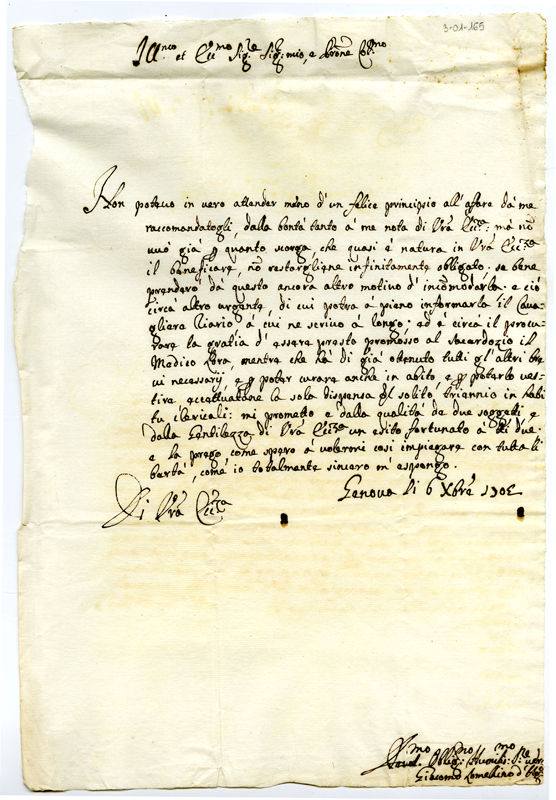 3-01-165
Ill.mo et Ecc.mo Sig.re Sig.r mio, e Prone Col.mo
Non potevo in vero attender meno d'un felice principio all'affare da me
raccomandatogli, dalla bontà tanto à me nota di Vra Ecc.za: mà nō
già quanto scorga che quasi è natura in Vra Ecc.za
il beneficare, nō restargliene infinitamente obligato. se bene
prenderò dà questo ancora altro motivo d'incomodarla. e ciò
circà altro urgente, di cui potrà à pieno informarla il Cava-
gliere Riario à cui ne scrivo à longo; ed è circà il procu-
rare la gratia d'essere presto promosso al sacerdozio il
Medico, mentre che hà di già obtenuto tutti gl'altri bre
vi necessarij, e p poter curare anche in abito, e p poterlo ves-
tire eccettuatone la sola dispensa del solito triennio in habi
tu clericali: mi prometto e dalla qualità de due soggetti e
dalla Gentilezza di Vra Ecc.za un esito fortunato à due.
e la prego come spero à volermi così impiegare con tutta li
bertà, come io totalmente sincero m'espongo.
Genova li 6 Xbre 1702
Di Vra Ecc.za
Obblig.mo
Giacomo Lomellino